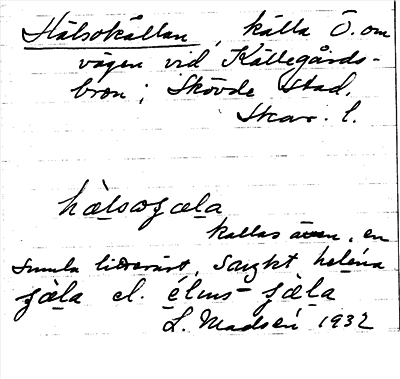 Hälsokällan, källa Ö. om
vägen vid Källegårds-
bron i Skövde stad.
Skar. l.
hälsoʒæla
kallas även, en
smula litterärt, sankt helena
ʒæla el. élins-ʒæla
L. Madsén 1932